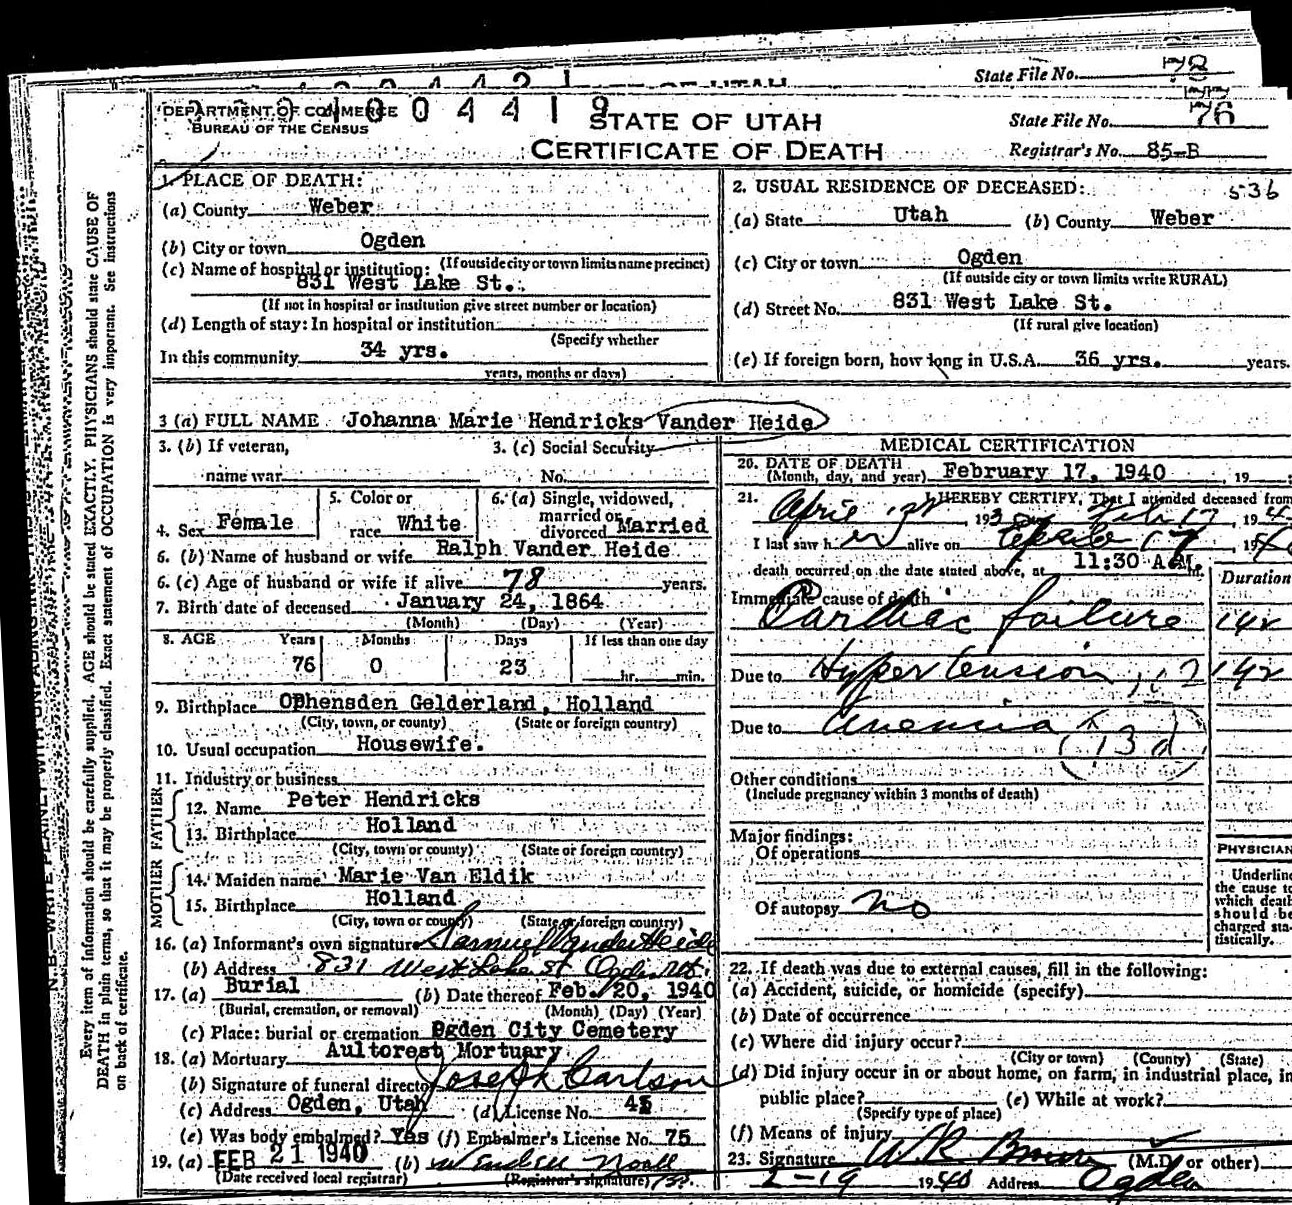 State File No. 78
DEPARTMENT OF COMMERCE
BUREAU OF THE CENSUS
004419
STATE OF UTAH
CERTIFICATE OF DEATH
State File No. 76
Registrar's No. 85-B
536
1. PLACE OF DEATH:
(a) County Weber
(b) City or town Ogden
(If outside city or town limits name precinct)
(c) Name of hospital or institution:
831 West Lake St.
(If not in hospital or institution give street number or location)
(d) Length of stay: In hospital or institution
(Specify whether
In this community 34 yrs.
years, months or days)
2. USUAL RESIDENCE OF DECEASED:
(a) State Utah (b) County Weber
(c) City or town Ogden
(If outside city or town limits write RURAL)
(d) Street No. 831 West Lake St.
(If rural give location)
(e) If foreign born, how long in U.S.A. 36 yrs. years.
3 (a) FULL NAME Johanna Marie Hendricks Vander Heide
3. (b) If veteran,
name war
3. (c) Social Security
No.
4. Sex Female
5. Color or
race White
6. (a) Single, widowed,
married or
divorced Married
6. (b) Name of husband or wife Ralph Vander Heide
6. (c) Age of husband or wife if alive 78 years.
7. Birth date of deceased January 24, 1864
(Month) (Day) (Year)
8. AGE Years Months Days If less than one day
76 0 23 hr. min.
9. Birthplace Ophensden Gelderland, Holland
(City, town, or county) (State or foreign country)
10. Usual occupation Housewife.
11. Industry or business
FATHER
12. Name Peter Hendricks
13. Birthplace Holland
(City, town or county) (State or foreign country)
MOTHER
14. Maiden name Marie Van Eldik
15. Birthplace Holland
(City, town or county) (State or foreign country)
16. (a) Informant's own signature Samuel Vander Heide
(b) Address 831 West Lake St Ogden Ut.
17. (a) Burial (b) Date thereof Feb. 20, 1940
(Burial, cremation, or removal) (Month) (Day) (Year)
(c) Place: burial or cremation Ogden City Cemetery
18. (a) Mortuary Aultorest Mortuary
(b) Signature of funeral director Joseph Carlson
(c) Address Ogden, Utah (d) License No.
(e) Was body embalmed? Yes (f) Embalmer's License No. 75
19. (a) FEB 21 1940 (b) Wendell Noall
(Date received local registrar) (Registrar's signature)
MEDICAL CERTIFICATION
20. DATE OF DEATH
(Month, day, and year) February 17, 1940, 19
21. I HEREBY CERTIFY, That I attended deceased from
April 193 Feb 17 194
I last saw her alive on 17, 1940
death occurred on the date stated above, at 11:30 A.M.
Duration
Immediate cause of death
Cardiac failure
Due to Hypertension
Due to Anemia
Other conditions
(Include pregnancy within 3 months of death)
Major findings:
Of operations
Of autopsy no
PHYSICIAN
Underline
the cause to
which death
should be
charged sta-
tistically.
22. If death was due to external causes, fill in the following:
(a) Accident, suicide, or homicide (specify)
(b) Date of occurrence
(c) Where did injury occur?
(City or town) (County) (State)
(d) Did injury occur in or about home, on farm, in industrial place, in
public place? (e) While at work?
(Specify type of place)
(f) Means of injury
23. Signature W R (M.D. or other)
2-19 1940 Address Ogden
Every item of information should be carefully supplied. AGE should be stated EXACTLY. PHYSICIANS should state CAUSE OF
DEATH in plain terms, so that it may be properly classified. Exact statement of OCCUPATION is very important. See Instructions
on back of certificate.